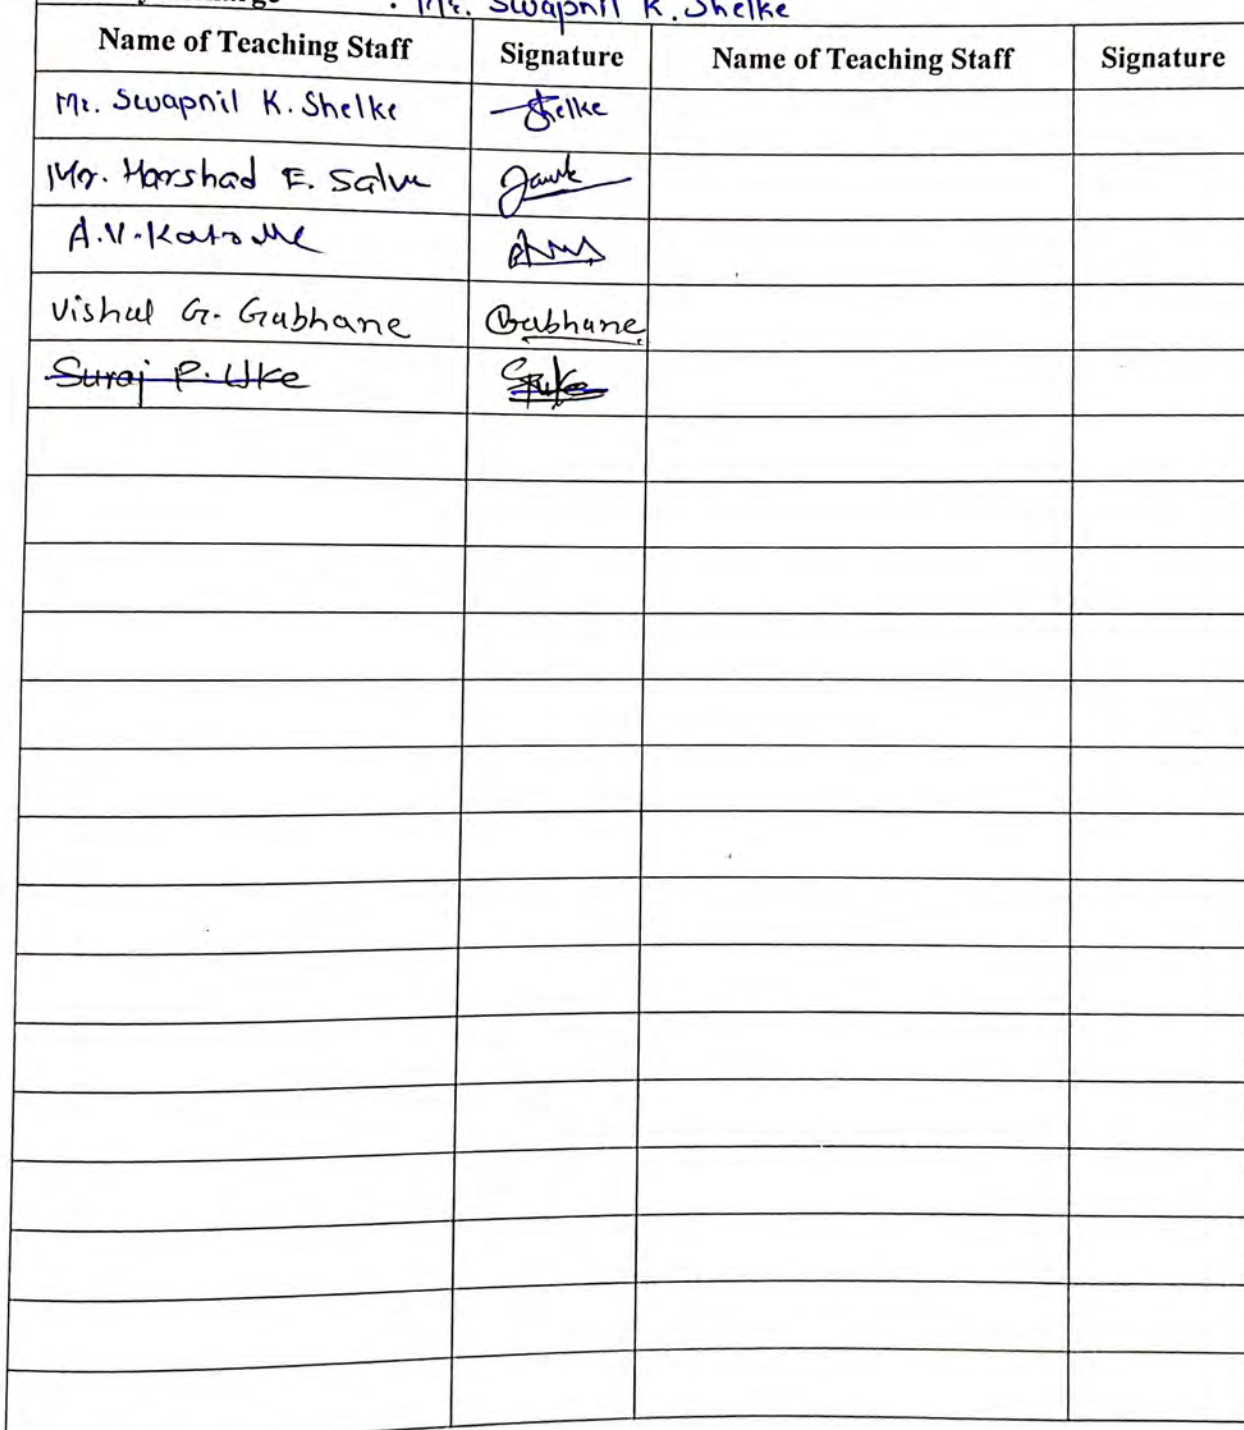 : Mr. Swapnil K. Shelke
Name of Teaching Staff Signature Name of Teaching Staff Signature
Mr. Swapnil K. Shelke Shelke
Mr. Harshad E. Salve
A.V.
Vishal G. Gabhane Gabhane
Suraj P. Uke